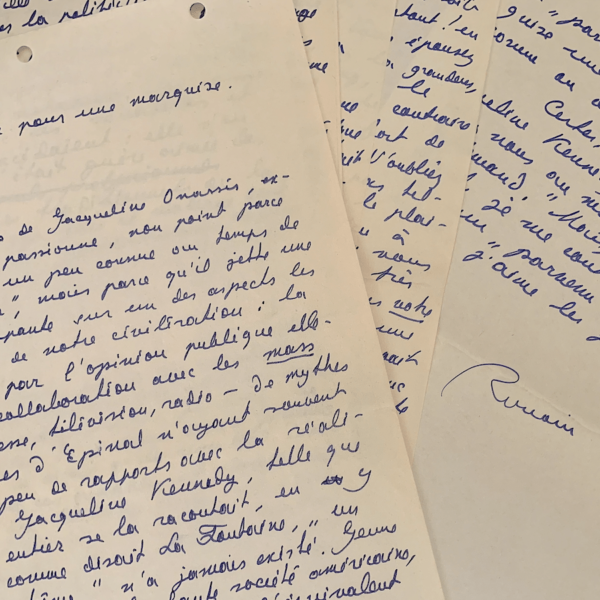 la politi
pour une marquise.
de Jacqueline Onassis, ex-
passionne, non point parce
un peu comme au temps de
", mais parce qu'il jette une
sur un des aspects les
de notre civilisation : la
par l'opinion publique elle-
collaboration avec les mass
esse, télévision, radio — de mythes
es d'Epinal n'ayant souvent
peu de rapports avec la réali-
Jacqueline Kennedy, telle que
entier se la racontait, en y
comme disait La Fontaine, " un
" n'a jamais existé. Jeune
haute société américaine,
équivalent
tout ! en
épousez
grandeur,
le
contraire
ort de
l'oublier
tel-
le plai-
à
nous
très
notre
une
ait
que
te
"par
quise une
comme on
Certes,
eline Kenne
nous ou
mand "Mois
je me cont
un "parvenu
j'aime les
Romain